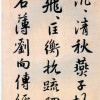 汎、清秋燕子
飛、匡衡抗疏
名薄劉向傳經